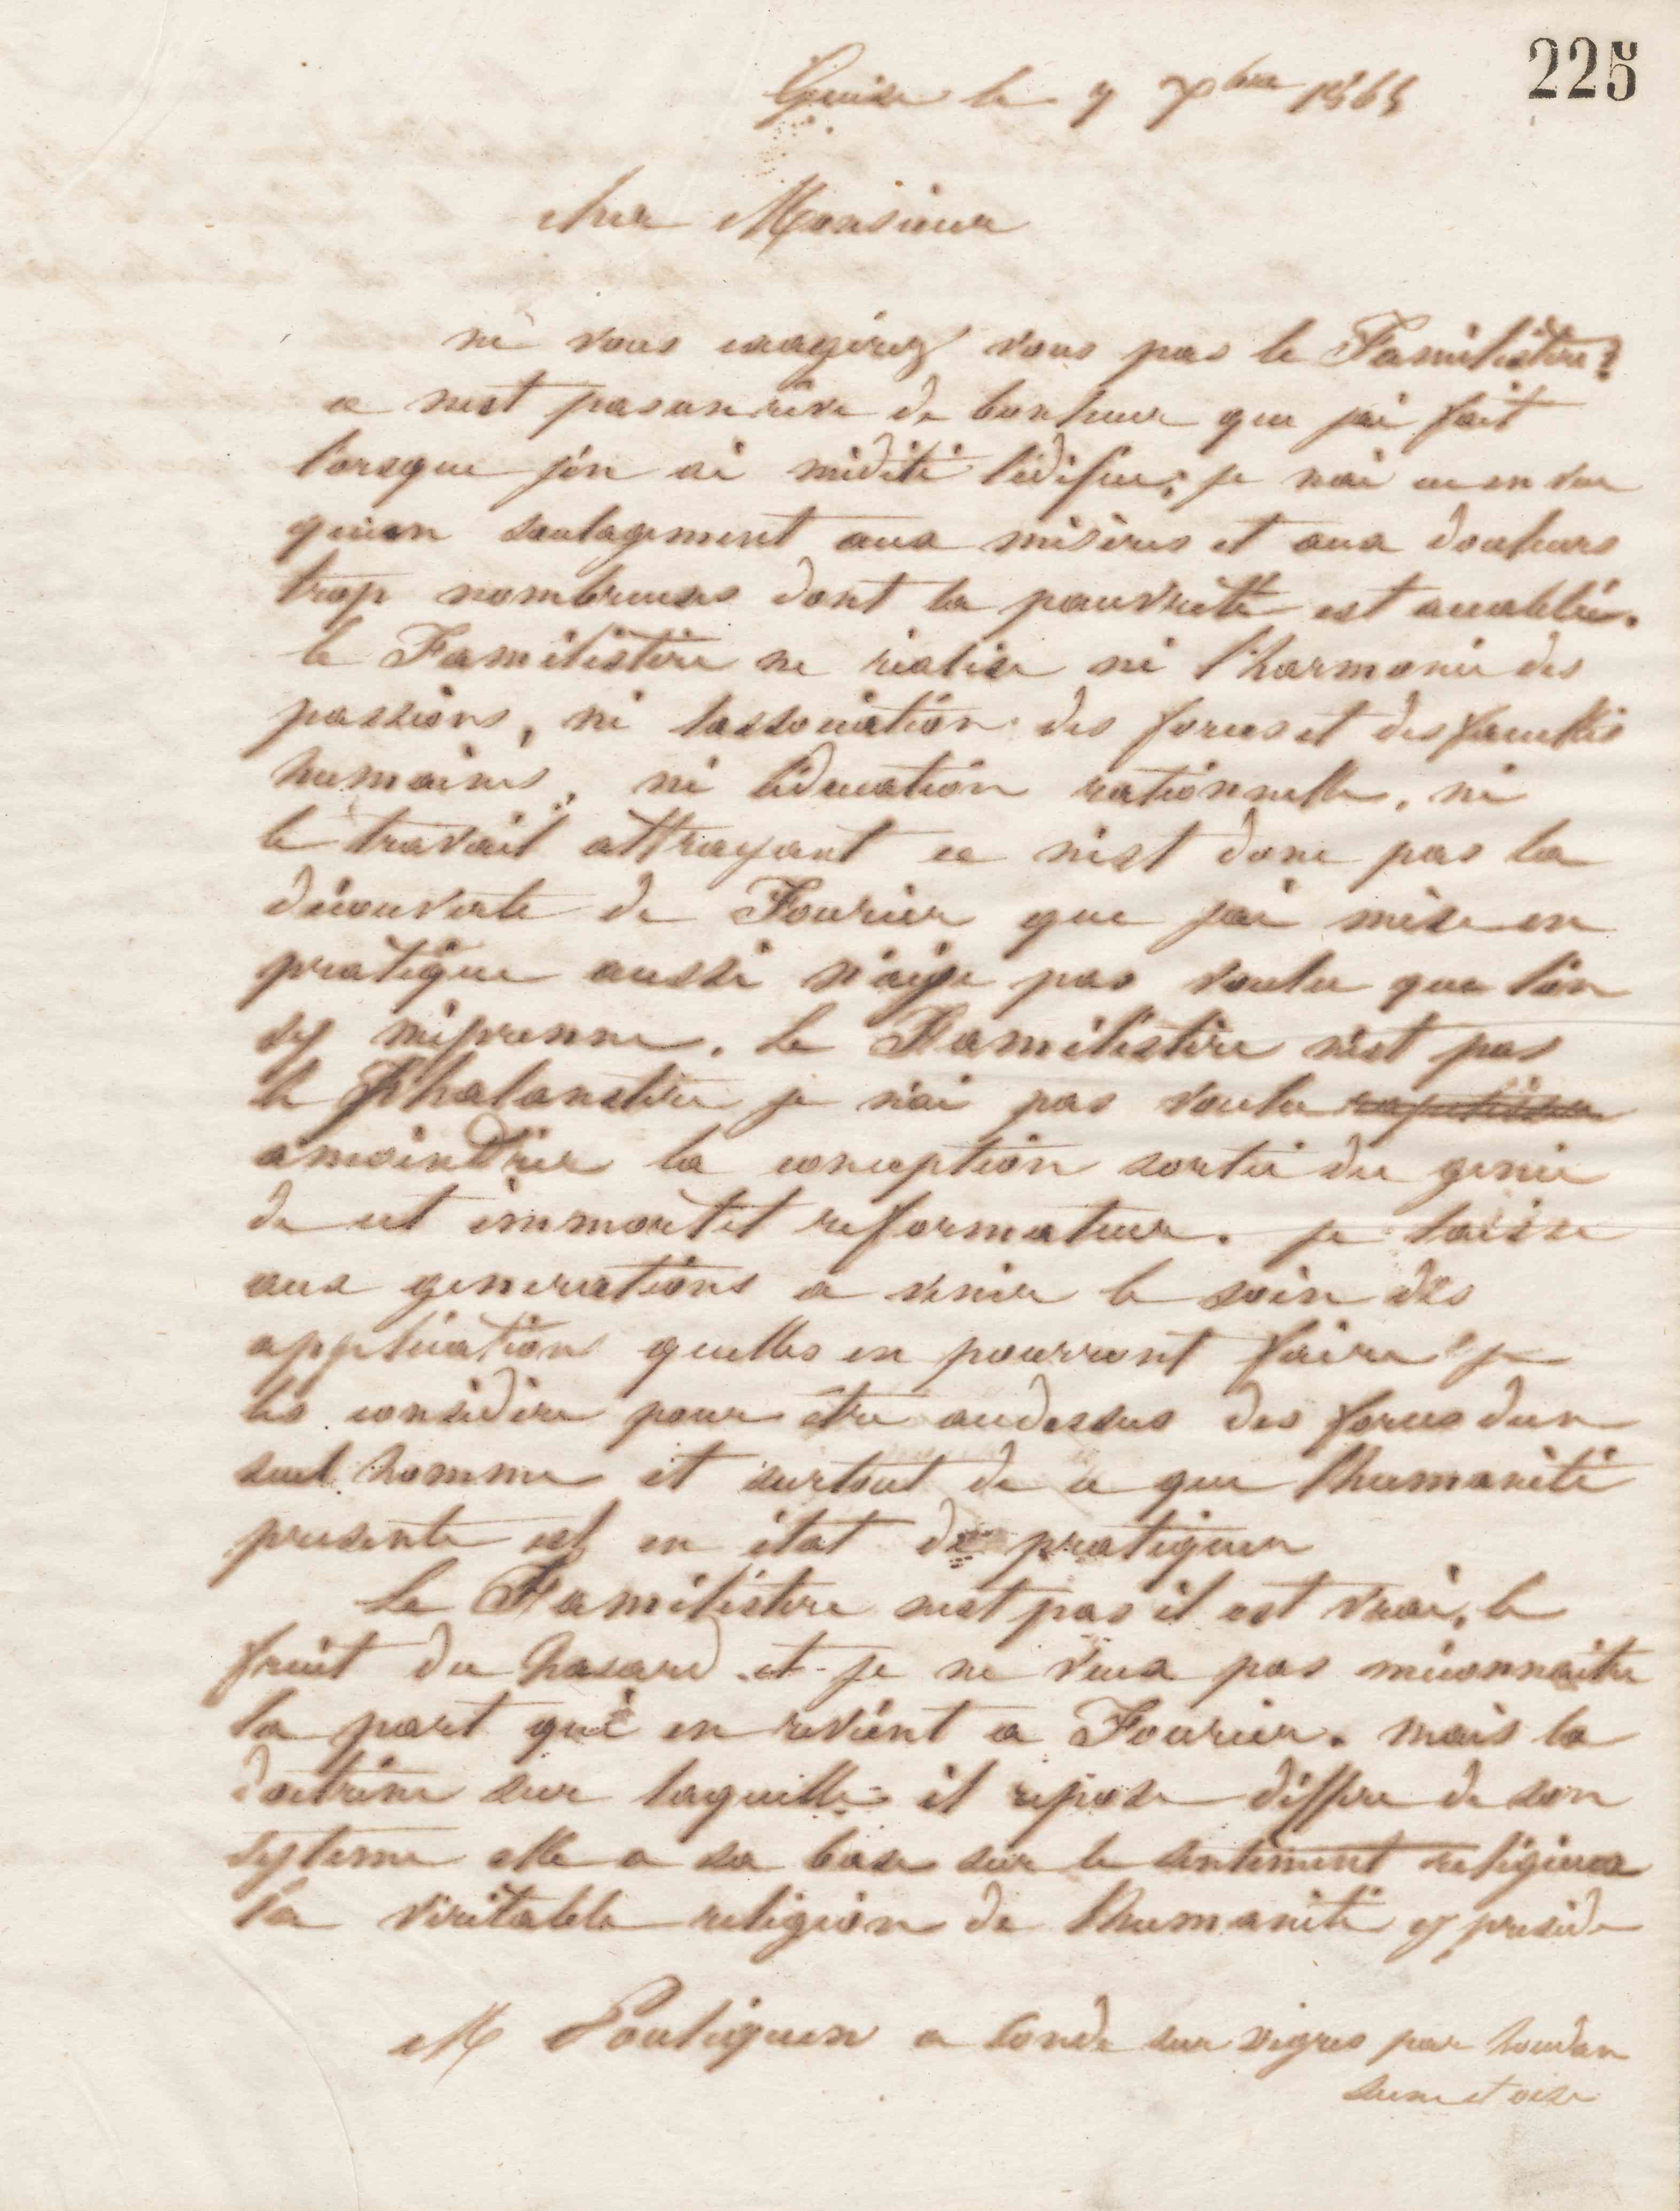 225
Guise le 9 Xbre 1865
cher Monsieur
ne vous exagérez vous pas le Familistère?
ce nest pas un rêve de bonheur que jai fait
lorsque jen ai médité lédifice; je nai eu en vue
qu'un soulagement aux misères et aux douleurs
trop nombreuses dont la pauvreté est accablée.
le Familistère ne réalise ni l'harmonie des
passions, ni lassociation des forces et des facultés
humaines, ni léducation rationnelle, ni
le travail attrayant ce n'est donc pas la
découverte de Fourier que jai mise en
pratique aussi n'aije pas voulu que lon
sy méprenne. Le Familistère n'est pas
le Phalanstère je n'ai pas voulu rapetisser
amoindrir la conception sortie du genie
de cet immortel reformateur. je laisse
aux generations a venir le soin des
application quelles en pourront faire je
les considère pour être audessus des forces dun
seul homme et surtout de ce que lhumanité
presente est en état de pratiquer
Le Familistère nest pas il est vrai, le
fruit du hasard et je ne veux pas méconnaitre
la part qui en revient a Fourier. mais la
doctrine sur laquelle il repose differe de son
systeme elle a sa base sur le sentiment religieux
la véritable religion de lhumanité y préside
M Pouliquen a Condé sur vegres par houdan
Seine et oise